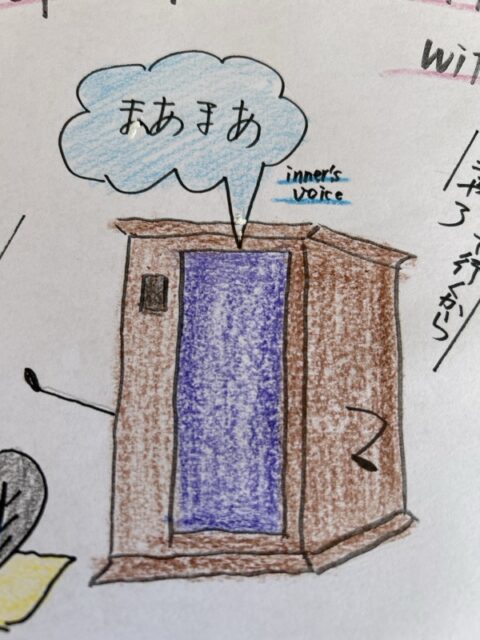 まあまあ
inner's
voice
行くから